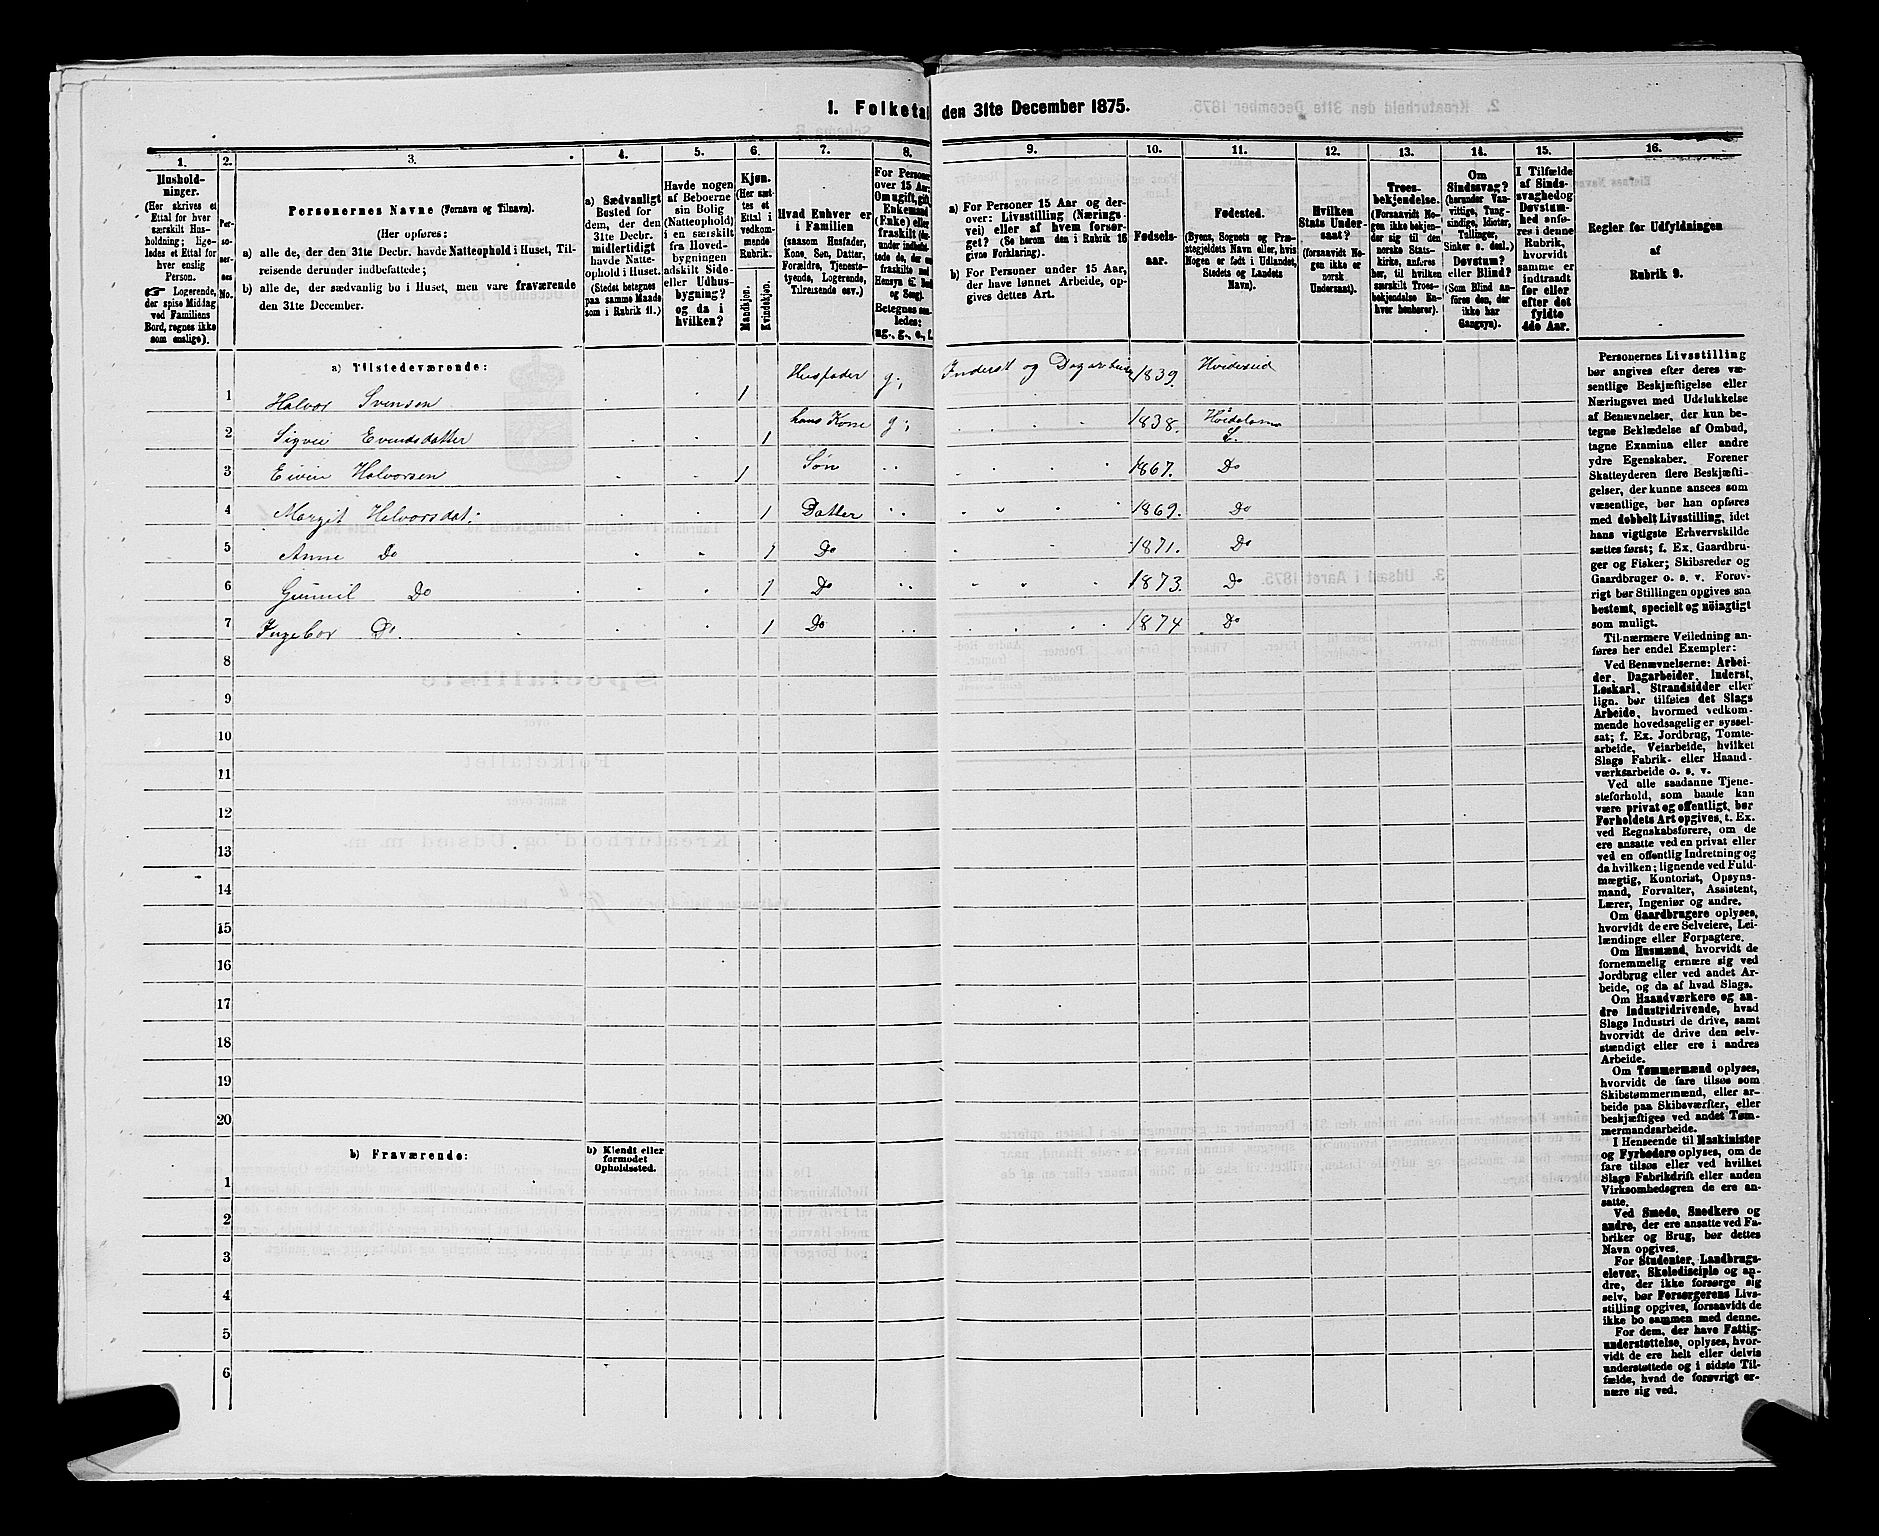 1. Folketal den 31te December 1875.
1. 2. 3. 4. 5. 6. 7. 8. 9. 10. 11. 12. 13. 14. 15. 16.
Hushold-
ninger.
(Her skrives et
Ettal for hver
særskilt Hus-
holdning; lige-
ledes et Ettal for
hver enslig
Person.
☞ Logerende,
der spise Middag
ved Familiens
Bord, regnes ikke
som enslige).
Per-
so-
ner-
nes
No.
Personernes Navne (Fornavn og Tilnavn).
(Her opføres:
a) alle de, der den 31te Decbr. havde Natteophold i Huset, Til-
reisende derunder indbefattede;
b) alle de, der sædvanlig bo i Huset, men vare fraværende
den 31te December.
a) Sædvanligt
Bosted for
dem, der den
31te Decbr.
midlertidigt
havde Natte-
ophold i Huset.
(Stedet betegnes
paa samme Maade
som i Rubrik 11.)
Havde nogen
af Beboerne
sin Bolig
(Natteophold)
i en særskilt
fra Hoved-
bygningen
adskilt Side-
eller Udhus-
bygning?
og da i
hvilken?
Kjøn.
(Her sæt-
tes et
Ettal i
vedkom-
mende
Rubrik.
Mandkjøn.
Kvindekjøn.
Hvad Enhver er
i Familien
(saasom Husfader,
Kone, Søn, Datter,
Forældre, Tjeneste-
tyende, Logerende,
Tilreisende osv.)
For Personer
over 15 Aar:
Om ugift, gift,
Enkemand
(Enke) eller
fraskilt
Betegnes saa-
ledes:
ug., g., e., f.
a) For Personer over 15 Aar og der-
over: Livsstilling (Nærings-
vei) eller af hvem forsør-
get? (Se herom den i Rubrik 16
givne Forklaring).
b) For Personer under 15 Aar,
der have lønnet Arbeide, op-
gives dettes Art.
Fødsels-
aar.
Fødested.
(Byens, Sognets og Præ-
stegjeldets Navn eller, hvis
Nogen er født i Udlandet,
Stedets og Landets
Navn).
Hvilken
Stats Under-
saat?
(forsaavidt No-
gen ikke er
norsk
Undersaat).
Troes-
bekjendelse.
(Forsaavidt No-
gen ikke bekjen-
der sig til den
norske Stats-
kirke, anføres
her, til hvilken
særskilt Troes-
bekjendelse En-
hver henhører).
Om
Sindssvag?
(herunder Van-
vittige, Tung-
sindige, Idioter,
Tullinger,
Sinker o. desl.)
Døvstum?
eller Blind?
(Som Blind an-
føres den, der
ikke har
Gangsyn).
I Tilfælde
af Sinds-
svaghed og
Døvstum-
hed anfø-
res i denne
Rubrik,
hvorvidt
samme er
indtraadt
før eller
efter det
fyldte
4de Aar.
Regler for Udfyldningen
af
Rubrik 9.
a) Tilstedeværende:
1 Halvor Svensen 1 Husfader g; Inderst og Dagarbeid 1839 Hvideseid
2 Sigvei Eivindsdatter 1 hans Kone g; 1838. Høidalsmo
3 Eivin Halvorsen 1 Søn 1867. Do
4 Margit Halvorsdat: 1 Datter 1869. Do
5 Anne Do 1 Do 1871. Do
6 Gunnil Do 1 Do 1873. Do
7 Ingebor Do. 1 Do 1874 Do
8
9
10
11
12
13
14
15
16
17
18
19
20
b) Fraværende:
b) Kjendt eller
formodet
Opholdssted.
1
2
3
4
5
6
Personernes Livsstilling
bør angives efter deres væ-
sentlige Beskjæftigelse eller
Næringsvei med Udelukkelse
af Benævnelser, der kun be-
tegne Beklædelse af Ombud,
tagne Examina eller andre
ydre Egenskaber. Forener
Skatteyderen flere Beskjæfti-
gelser, der kunne ansees som
væsentlige, bør han opføres
med dobbelt Livsstilling, idet
hans vigtigste Erhvervskilde
sættes først; f. Ex. Gaardbru-
ger og Fisker; Skibsreder og
Gaardbruger o. s. v. Forøv-
rigt bør Stillingen opgives saa
bestemt, specielt og nöiagtigt
som muligt.
Til nærmere Veiledning an-
føres her endel Exempler:
Ved Benævnelserne: Arbei-
der, Dagarbeider, Inderst,
Løskarl, Strandsidder eller
lign. bør tilføies det Slags
Arbeide, hvormed vedkom-
mende hovedsagelig er syssel-
sat; f. Ex. Jordbrug, Tomte-
arbeide, Veiarbeide, hvilket
Slags Fabrik- eller Haand-
værksarbeide o. s. v.
Ved alle saadanne Tjene-
steforhold, som baade kan
være privat og offentligt, bør
Forholdets Art opgives, t. Ex.
ved Regnskabsførere, om de
ere ansatte ved en privat eller
ved en offentlig Indretning og
da hvilken; lignende ved Fuld-
mægtig, Kontorist, Opsyns-
mand, Forvalter, Assistent,
Lærer, Ingeniør og andre.
Om Gaardbrugere oplyses,
hvorvidt de ere Selveiere, Lei-
lændinge eller Forpagtere.
Om Husmænd, hvorvidt de
fornemmelig ernære sig ved
Jordbrug eller ved andet Ar-
beide, og da af hvad Slags.
Om Haandværkere og an-
dre Industridrivende, hvad
Slags Industri de drive, samt
hvorvidt de drive den selv-
stændigt eller ere i andres
Arbeide.
Om Tømmermænd oplyses,
hvorvidt de fare tilsøs som
Skibstømmermænd, eller ar-
beide paa Skibsværfter, eller
beskjæftiges ved andet Tøm-
mermandsarbeide.
I Henseende til Maskinister
og Fyrbødere oplyses, om de
fare tilsøs eller ved hvilket
Slags Fabrikdrift eller anden
Virksomhedsgren de ere an-
satte.
Ved Smede, Snedkere og
andre, der ere ansatte ved Fa-
briker og Brug, bør dettes
Navn opgives.
For Studenter, Landbrugs-
elever, Skoledisciple og an-
dre, der ikke forsørge sig
selv, bør Forsørgerens Livs-
stilling opgives, forsaavidt de
ikke bo sammen med denne.
For dem, der have Fattig-
understøttelse, oplyses, hvor-
vidt de ere helt eller delvis
understøttede og i sidste Til-
fælde, hvad de forøvrigt er-
nære sig ved.